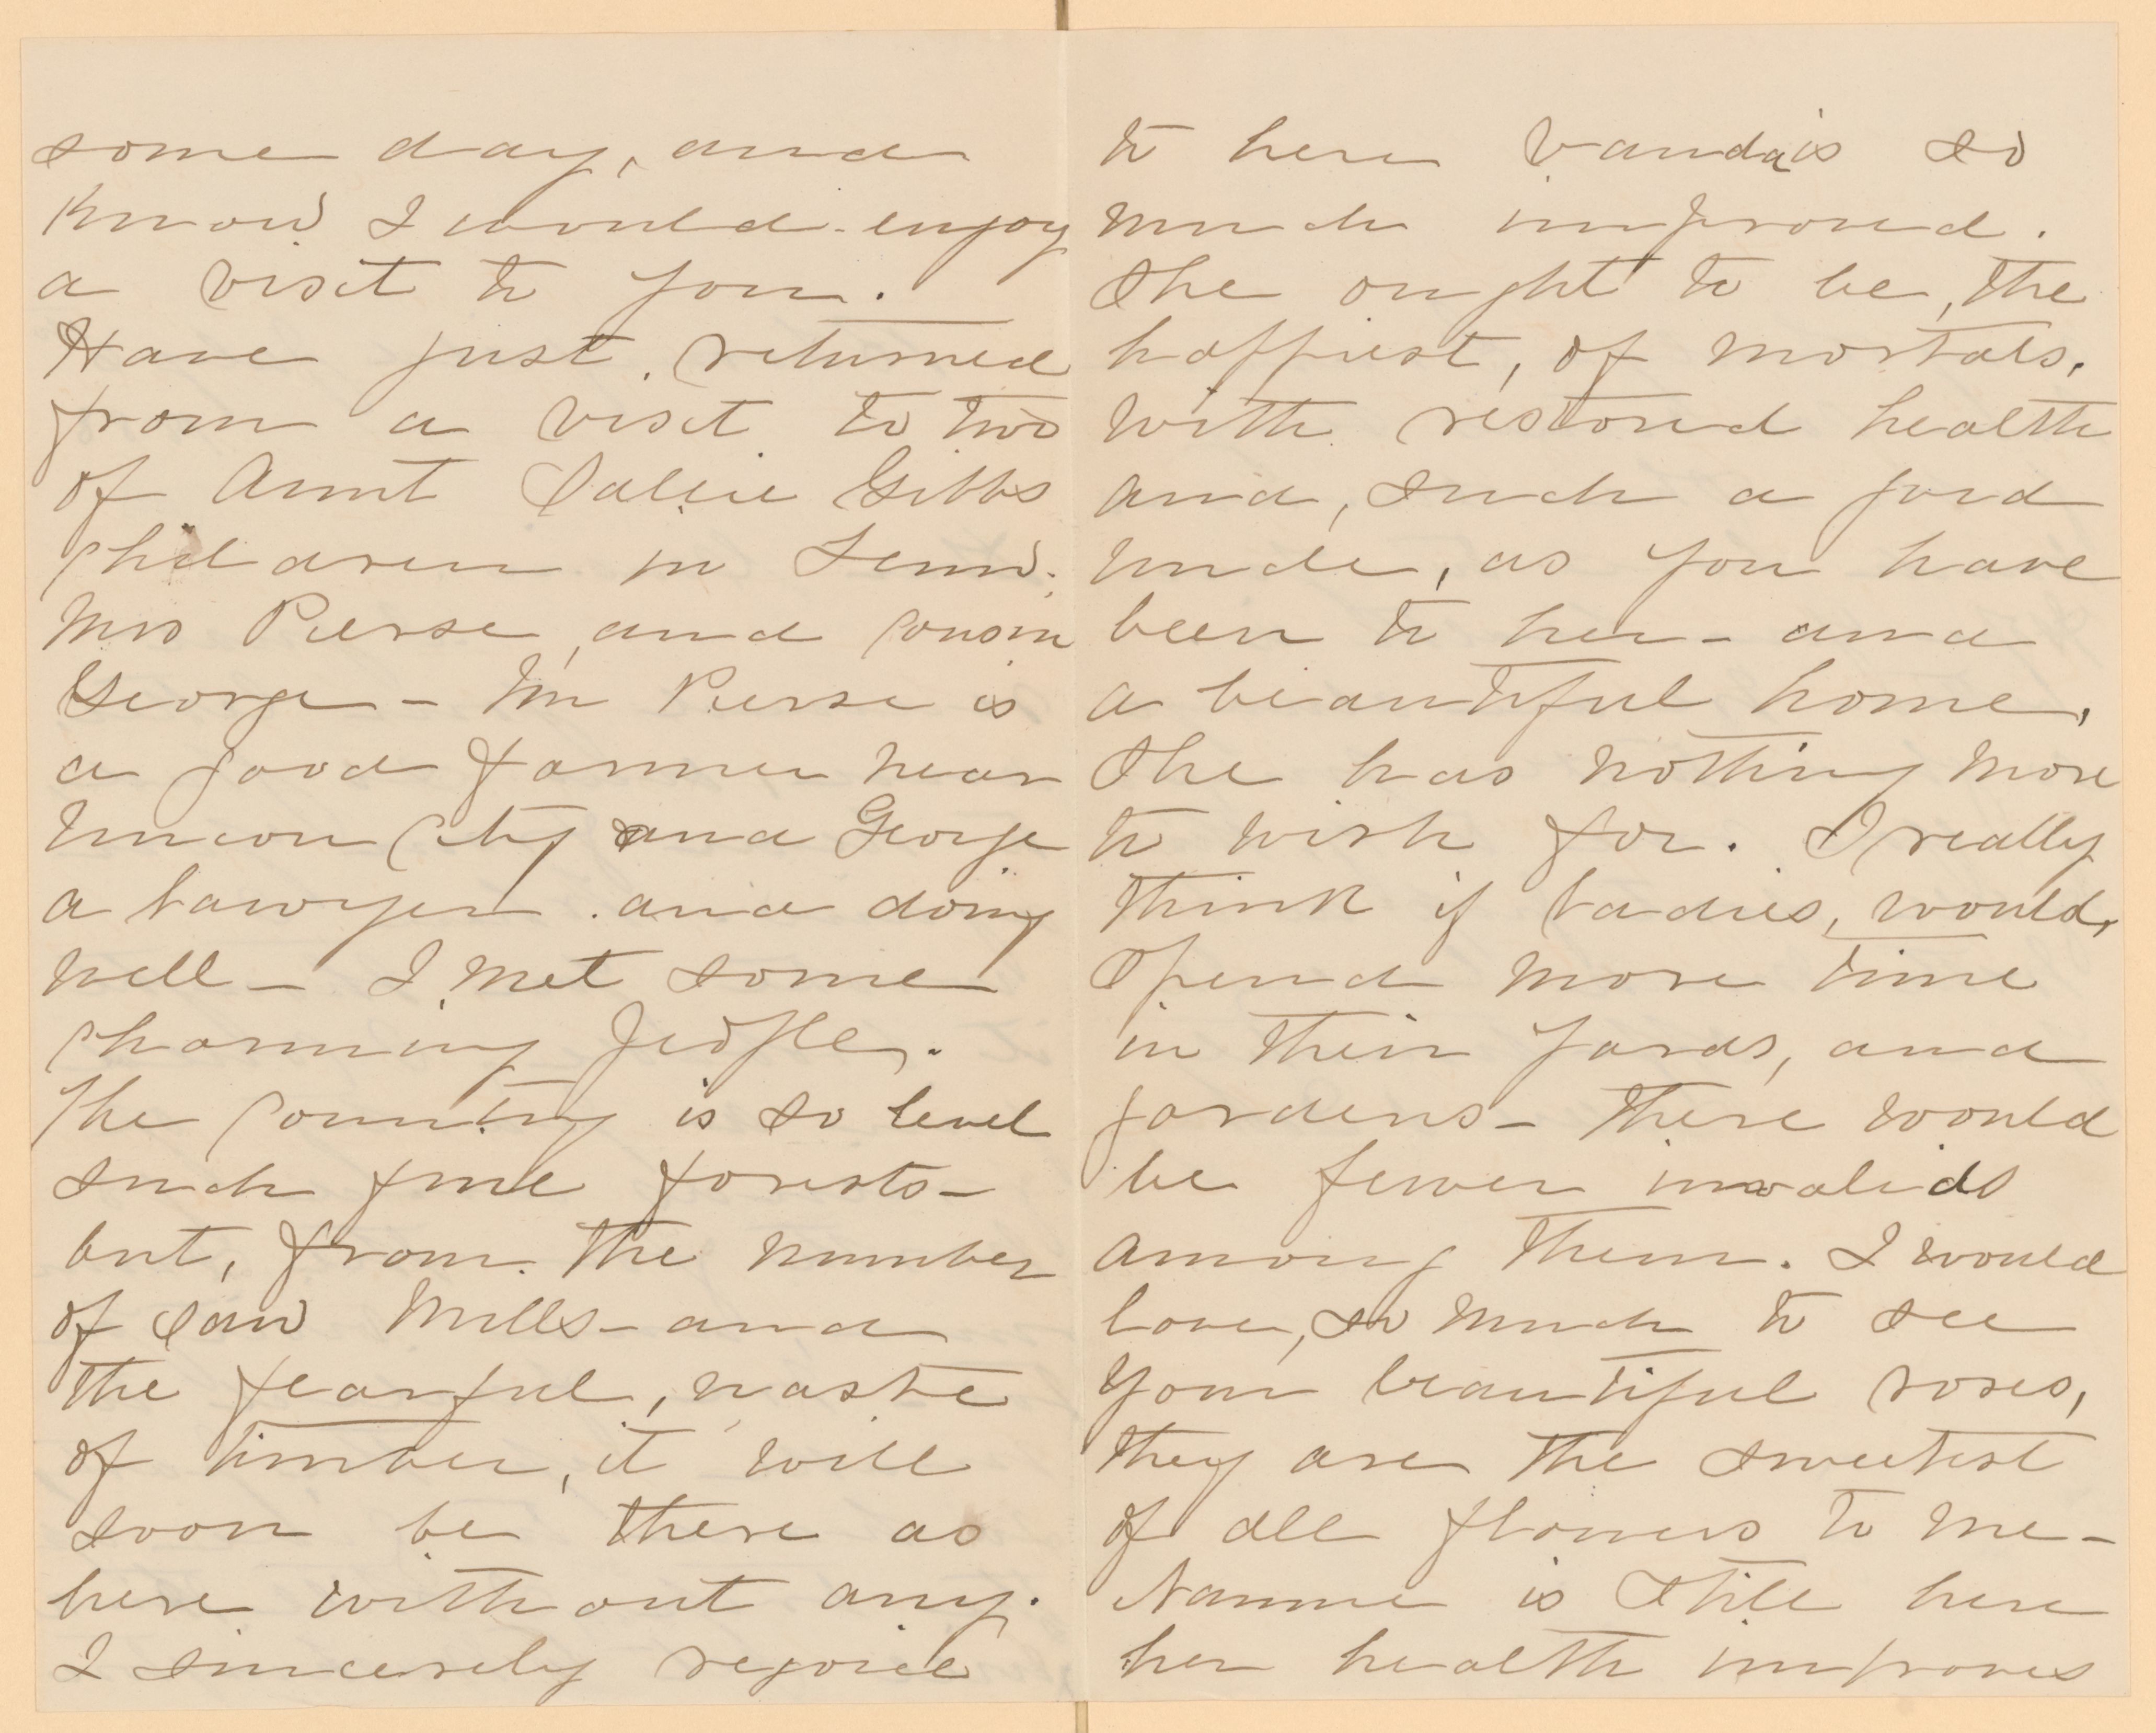 some day, and
know I would enjoy
a visit to you.
Have just returned
from a visit to two
of Aunt Sallie Gibbs
Children in Tenn.
Mrs Pierse, and Cousin
George - Mr Pierse is
a good farmer near
Union City and George
a Lawyer. and doing
well - I met some
Charming People.
The Country is so level
such fine forests -
but, from the number
of Saw Mills - and
the fearful, waste
of timber, it will
soon be there as
here without any.
I sincerely rejoice
to here Vanda is so
much improved.
She ought to be, the
happiest, of mortals,
with restored health
and, such a good
uncle, as you have
been to her - and
a beautiful home,
She has nothing more
to wish for. I really
think if Ladies, would,
Spend more time
in their Yards, and
gardens - there would
be fewer invalids
among them. I would
love, so much to see
your beautiful roses,
they are the sweetest
of all flowers to me -
Nannie is Still here
her health improves